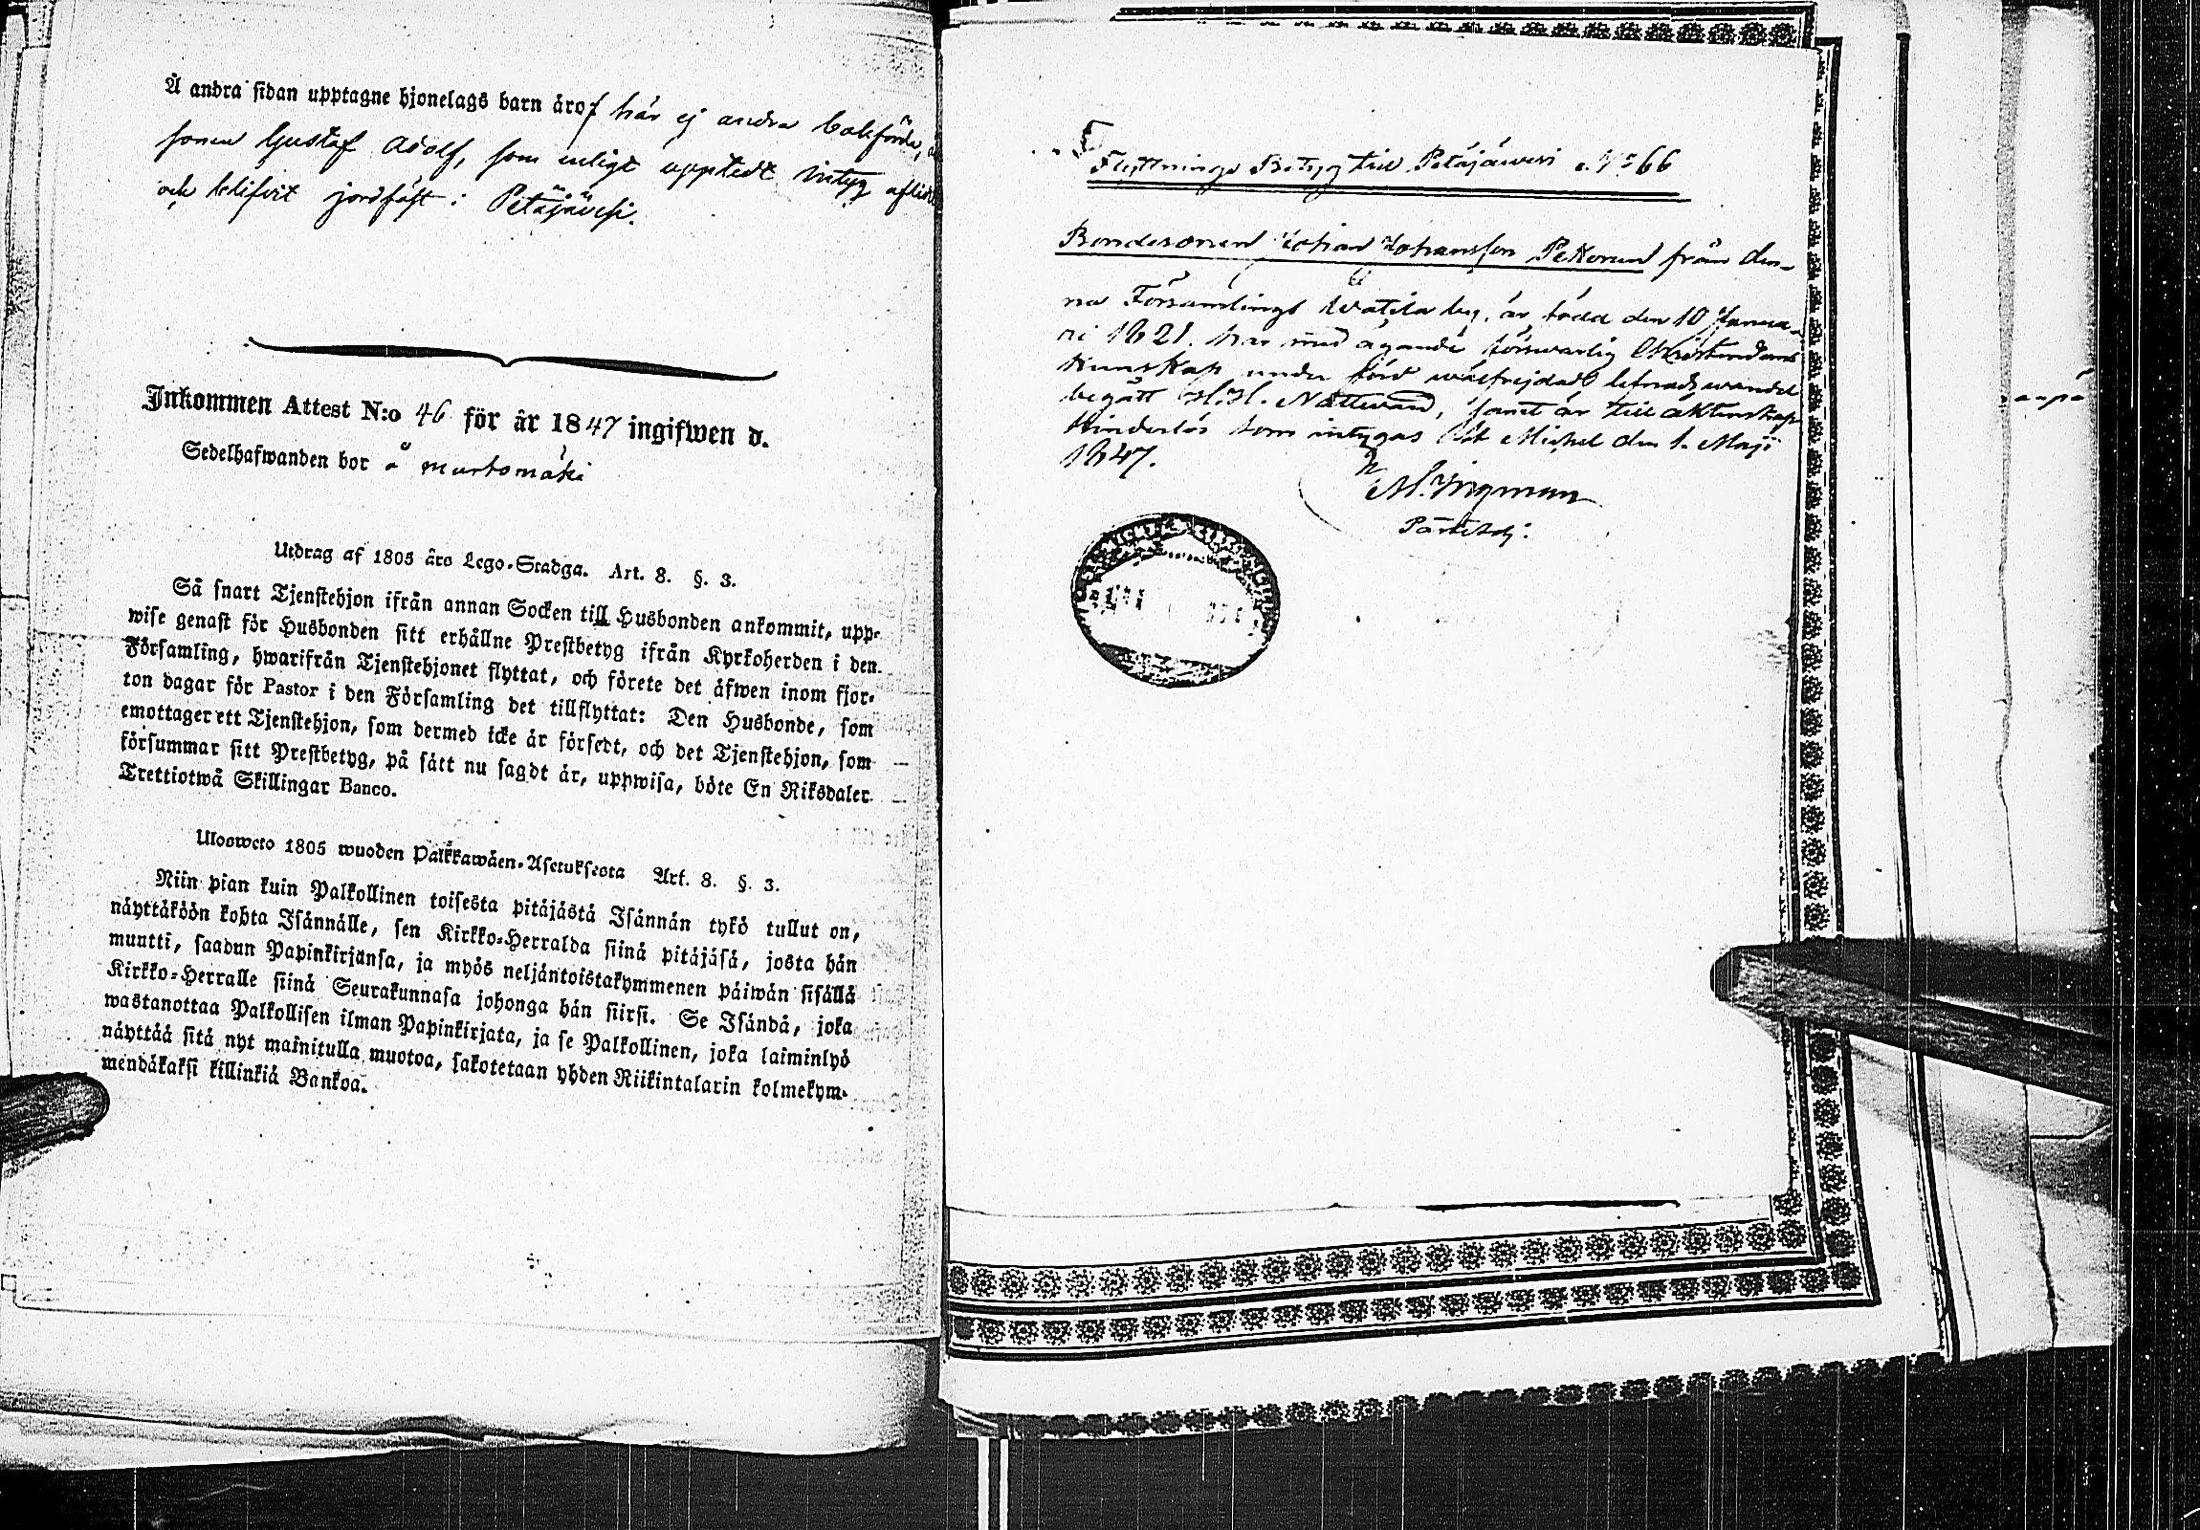 Å andra sidan upptagne hjonelags barn äro här ej andra bokförde,
sonen Gustaf Adolf, som enligt uppteedt intyg aflidit
och blifvit jordfäst i Petäjävesi.
Inkommen Attest N:o 46 för år 1847 ingifwen d.
Sedelhafwanden bor å murtomäki
Utdrag af 1805 års Lego-Stadga. Art. 8. §. 3.
Så snart Tjenstehjon ifrån annan Socken till Husbonden ankommit, upp-
wise genast för Husbonden sitt erhållne Prestbetyg ifrån Kyrkoherden i den
Församling, hwarifrån Tjenstehjonet flyttat, och förete det äfwen inom fjor-
ton dagar för Pastor i den Församling det tillflyttat: Den Husbonde, som
emottager ett Tjenstehjon, som dermed icke är försedt, och det Tjenstehjon, som
försummar sitt Prestbetyg, på sätt nu sagdt är, uppwisa, böte En Riksdaler
Trettiotwå Skillingar Banco.
Ulosweto 1805 wuoden Palkkawäen-Asetuksesta Art. 8. §. 3.
Niin pian kuin Palkollinen toisesta pitäjästä Isännän tykö tullut on,
näyttäköön kohta Isännälle, sen Kirkko-Herralda siinä pitäjäsä, josta hän
muutti, saadun Papinkirjansa, ja myös neljäntoistakymmenen päiwän sisällä
Kirkko-Herralle siinä Seurakunnasa johonga hän siirsi. Se Isändä, joka
wastanottaa Palkollisen ilman Papinkirjata, ja se Palkollinen, joka laiminlyö
näyttää sitä nyt mainitulla muotoa, sakotetaan yhden Riikintalarin kolmekym-
mendäkaksi killinkiä Bankoa.
Flyttnings Betyg till Petäjäwesi N:o 66
Bondesonen Johan Johansson Pekonen från den-
na Församlings by, är född den 10 Janua-
ri 1821. har med ägande försvarlig Christendoms
kunskap under förd wälfrejdad lefnadswandel
begått H. H. Nattward, samt är till äktenskap
hinderlös som intygas St Michel den 1. Maji
1847.